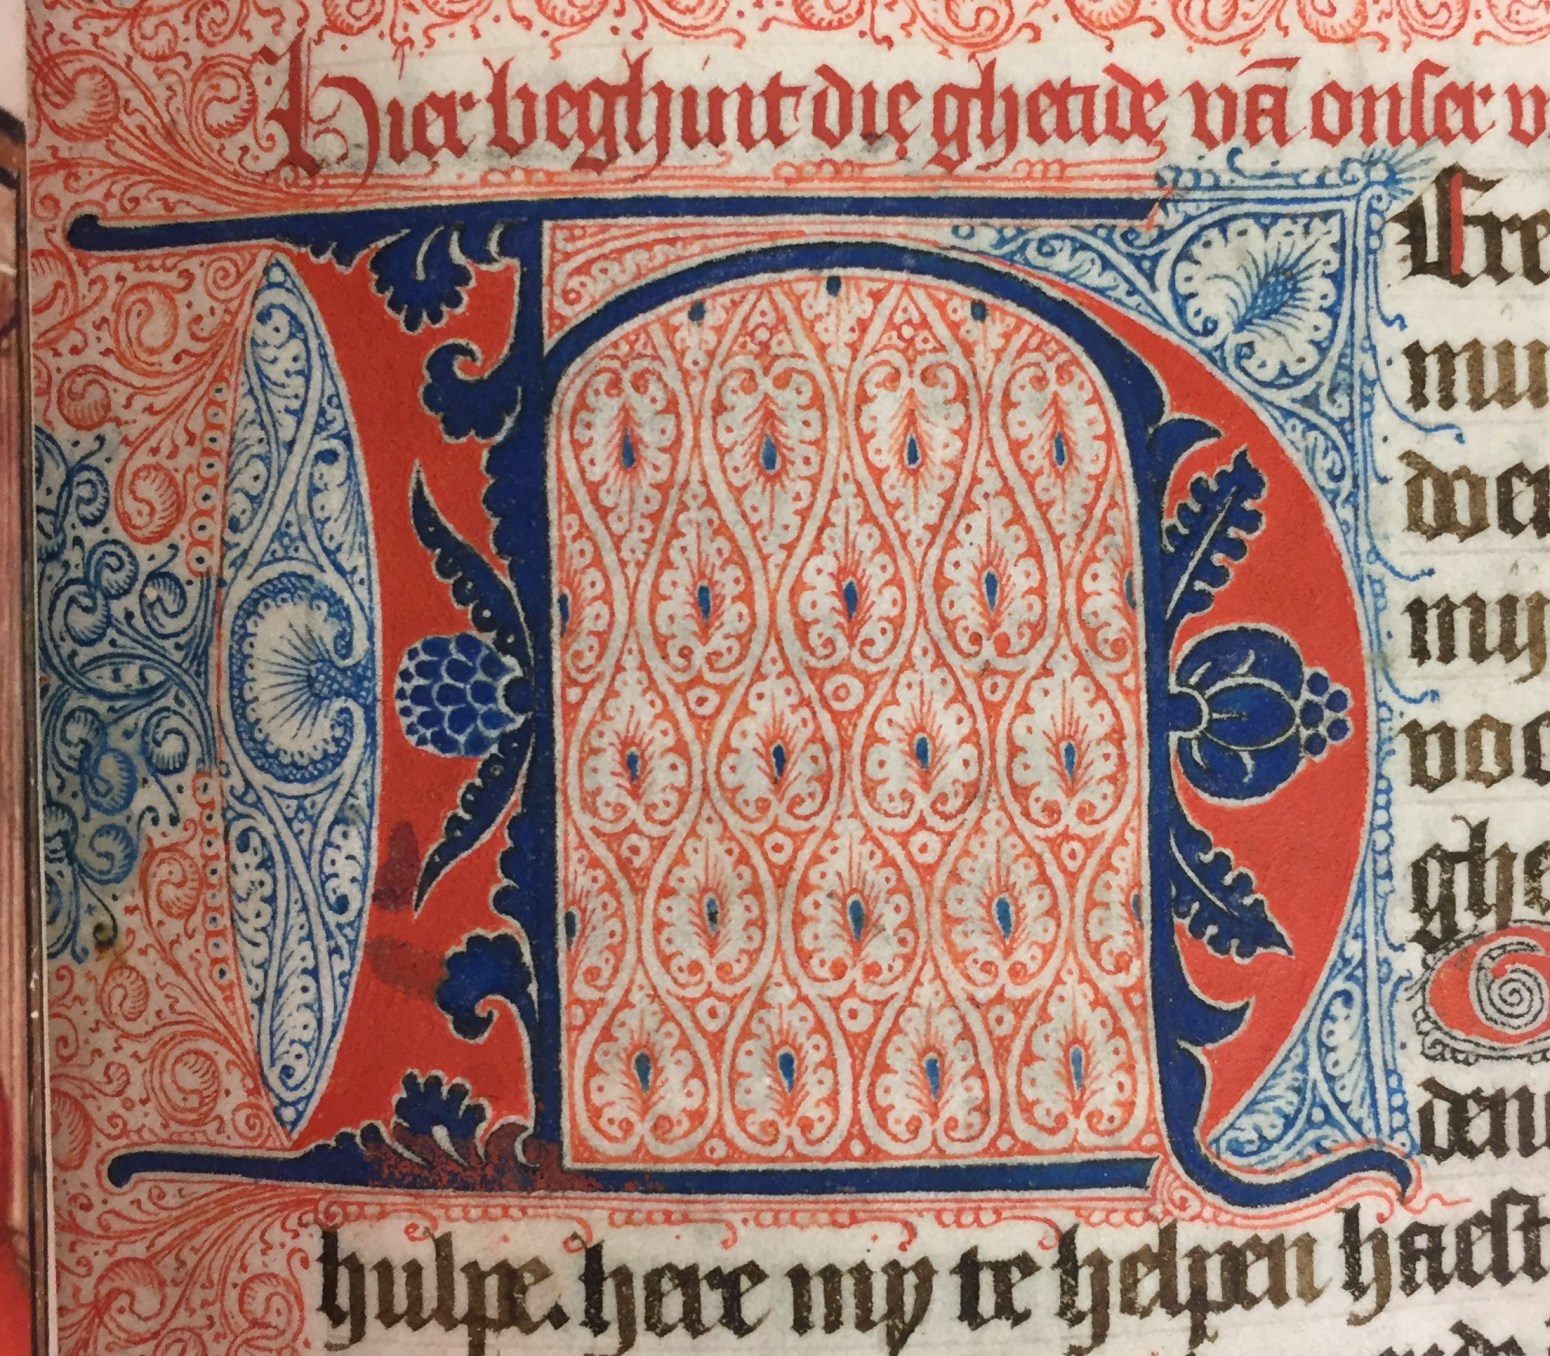 Hier beghint die ghetide vā onser v
HEre
mij
voe
ghe
den
hulpe. here my te helpen haest